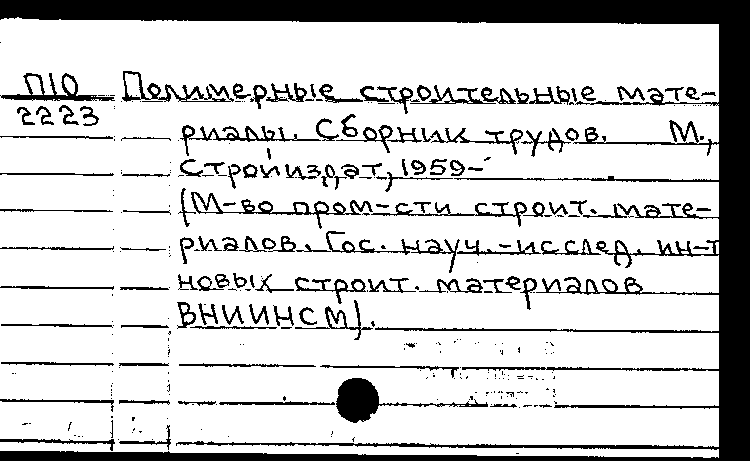 П10 Полимерные строительные мате-
2223
риалы. Сборник трудов. М.,
Стройиздат, 1959-
(М-во пром-сти строит. мате-
риалов. Гос. науч.-исслед. ин-т
новых строит. материалов
ВНИИНСМ).